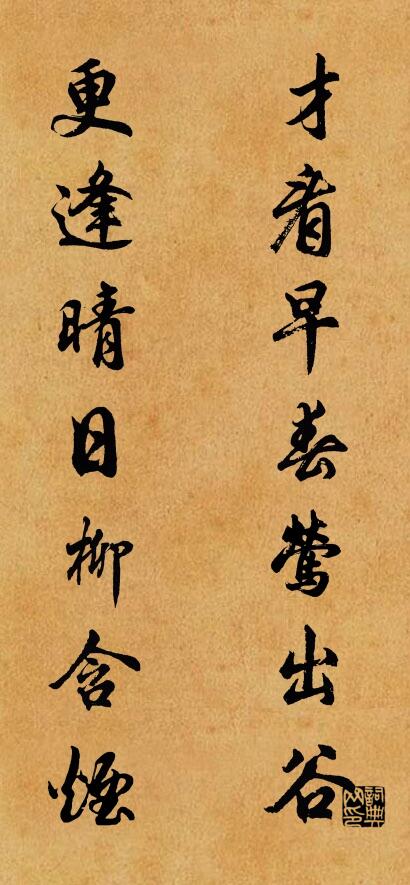 才看早春莺出谷
更逢晴日柳含煙